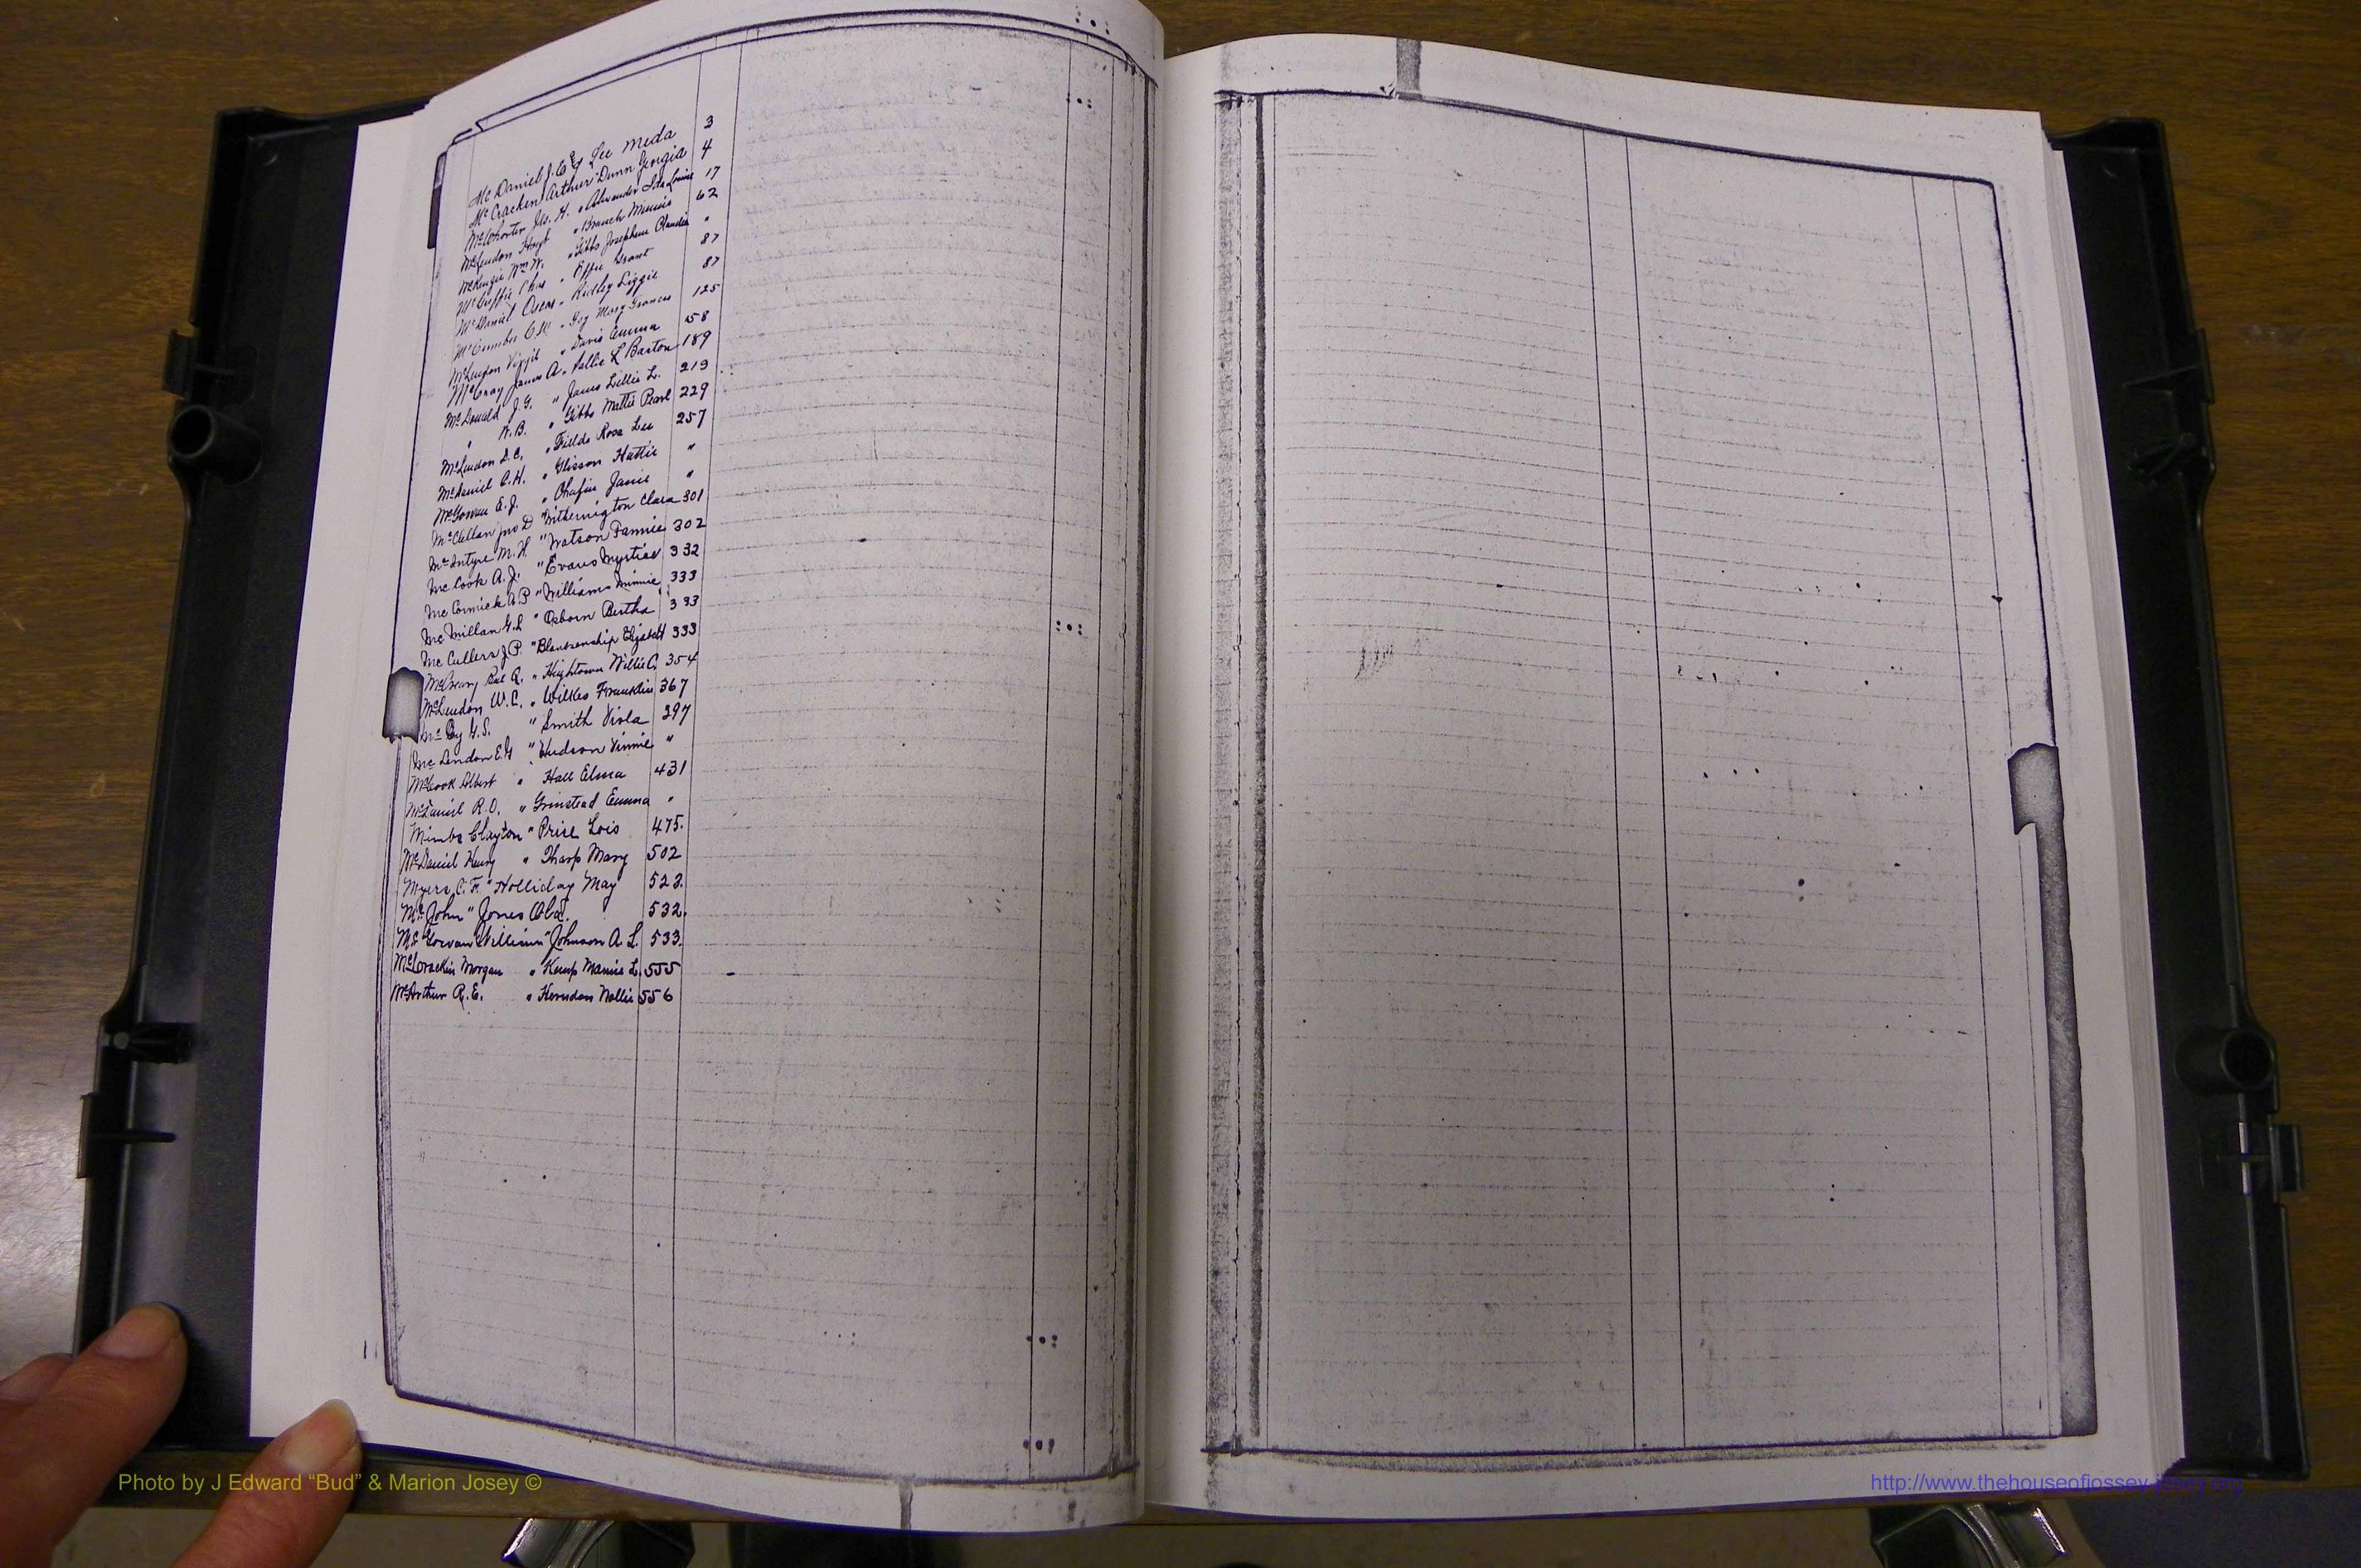 McDaniel J. C. & Lee Meda 3
McCracken Arthur " Dunn Georgia 4
McWhorter Jas. H. " Alexander Ida Louise 17
McLendon Hoyt " Branch Minnie 62
McKenzie Wm W. " Gibbs Josephine Claudia "
McGriffie Chas " Effie Grant 87
McDaniel Oscar " Ridley Lizzie 87
McCumber C. " Ivy Mary Frances 125
McLendon Virgil " Davis Emma 158
McCray James A. " Sallie L Barton 189
McDonald J. G. " James Lillie L. 219
" W. B. " Gibbs Mattie Pearl 229
McLendon D. C. " Fields Rosa Lee 257
McDaniel C. H. " Glisson Hattie "
McGowan E. J. " Chafin Janie "
McClellan Jno D " Witherington Clara 301
McIntyre M. H " Watson Fannie 302
McCook A. J. " Evans Myrtice 332
McCormick A P " Williams Minnie 333
McMillan G. L " Osborn Bertha 333
McCullers J P. " Blankenship Elizabeth 333
McCreary A. " Hightower Willie C. 354
McLendon W. C. " Wilkes Franklin 367
Mc G. S. " Smith Viola 397
McLendon E. G " Hudson Vinnie "
McCook Albert " Hall Elma 431
McDaniel R. O. " Grinstead Emma "
Mimbs Clayton " Price Lois 475.
McDaniel Henry " Tharp Mary 502
Myers C. F. " Holliday May 523.
Mc John " Jones Ola. 532.
McGowan William " Johnson A. L. 533.
McCrackin Morgan " Kemp Mamie L. 555
McArthur R. E. " Herndon Nollie 556
Photo by J Edward “Bud” & Marion Josey ©
http://www.thehouseofjossey-josey.org